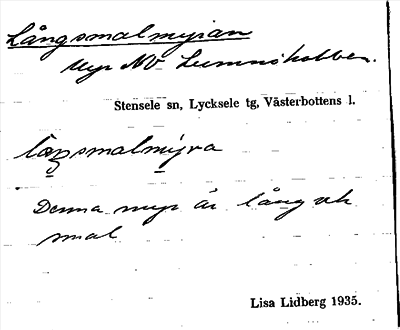 Långsmalmyran
Myr NV Lumnskobben.
Stensele sn, Lycksele tg, Västerbottens l.
låŋsmalmỵra
Denna myr är lång och
smal
Lisa Lidberg 1935.